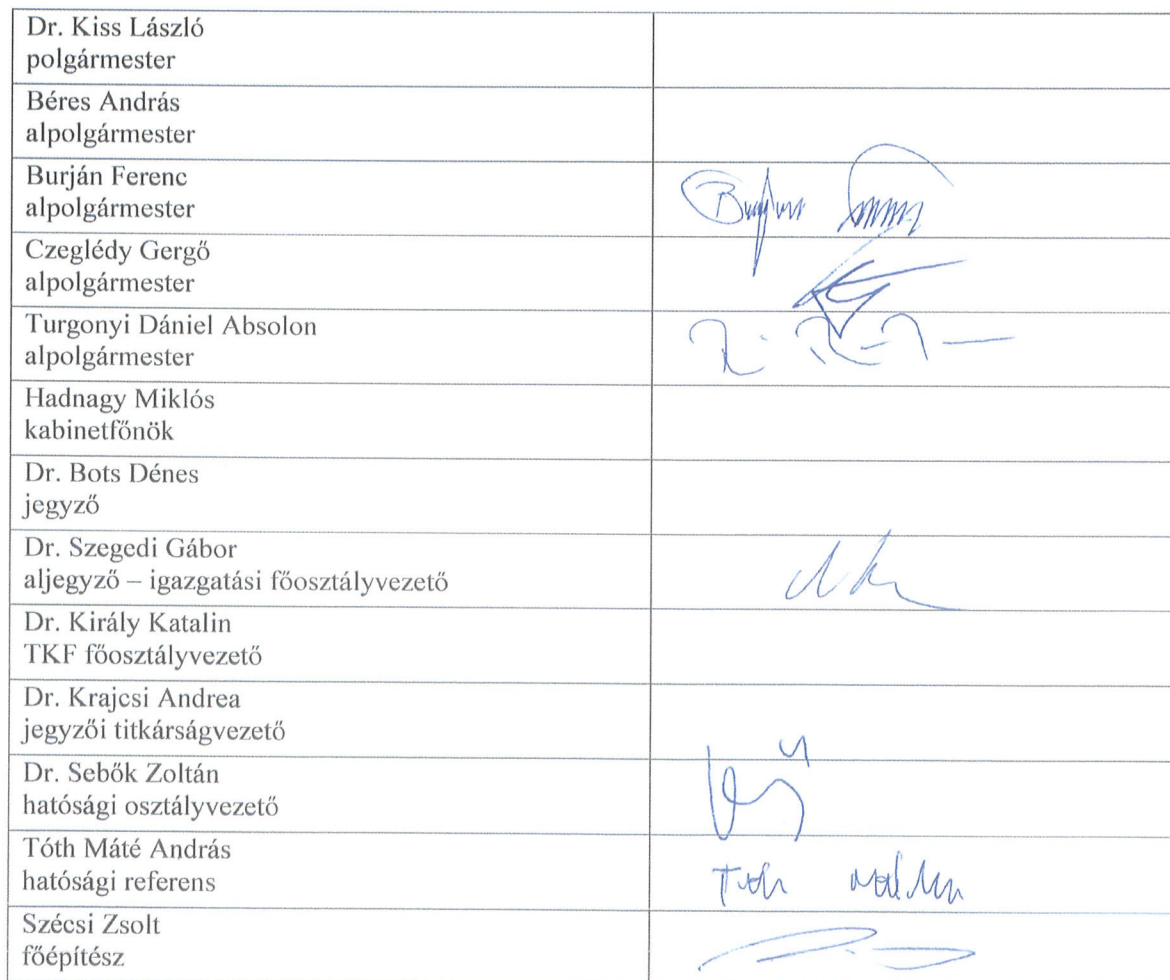 Dr. Kiss László
polgármester
Béres András
alpolgármester
Burján Ferenc
alpolgármester
Czeglédy Gergő
alpolgármester
Turgonyi Dániel Absolon
alpolgármester
Hadnagy Miklós
kabinetfőnök
Dr. Bots Dénes
jegyző
Dr. Szegedi Gábor
aljegyző – igazgatási főosztályvezető
Dr. Király Katalin
TKF főosztályvezető
Dr. Krajcsi Andrea
jegyzői titkárságvezető
Dr. Sebők Zoltán
hatósági osztályvezető
Tóth Máté András
hatósági referens
Szécsi Zsolt
főépítész